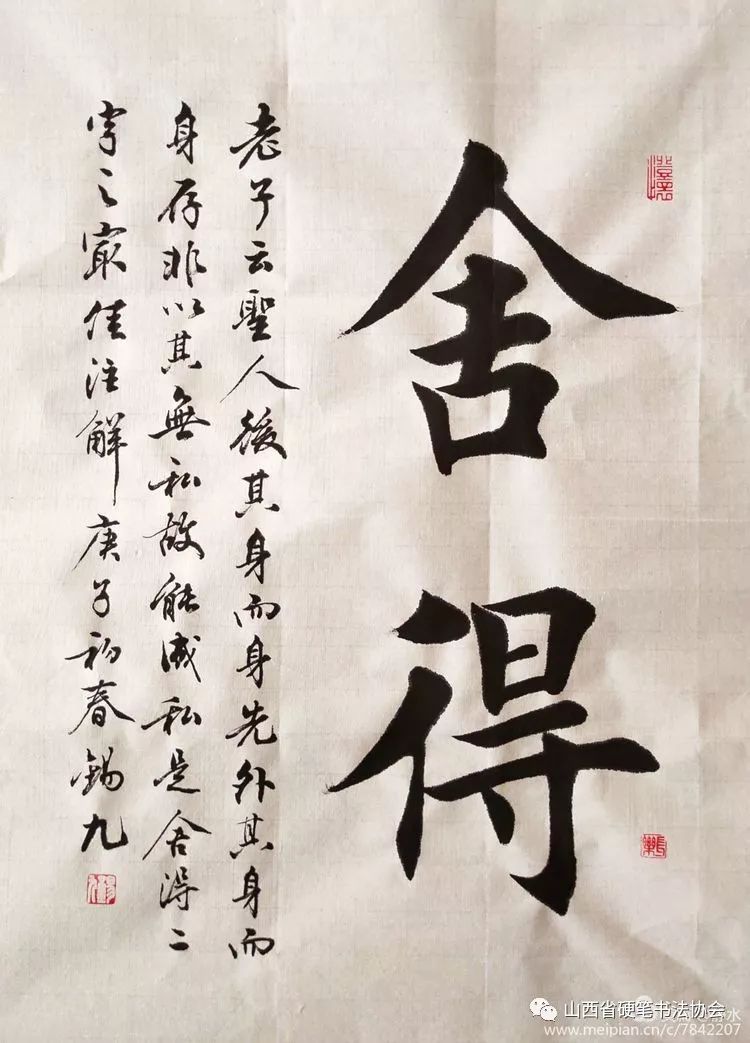 舍得
老子云聖人後其身而身先外其身而
身存非以其無私故能成私是舍得二
字之最佳注解庚子初春錫九
山西省硬笔书法协会
www.meipian.cn/c/7842207